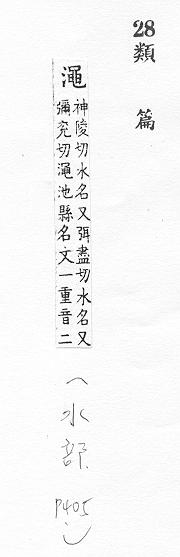 28類篇
澠
神陵切水名又弭盡切水名又
彌兖切澠池縣名文一重音二
(水部 P405)